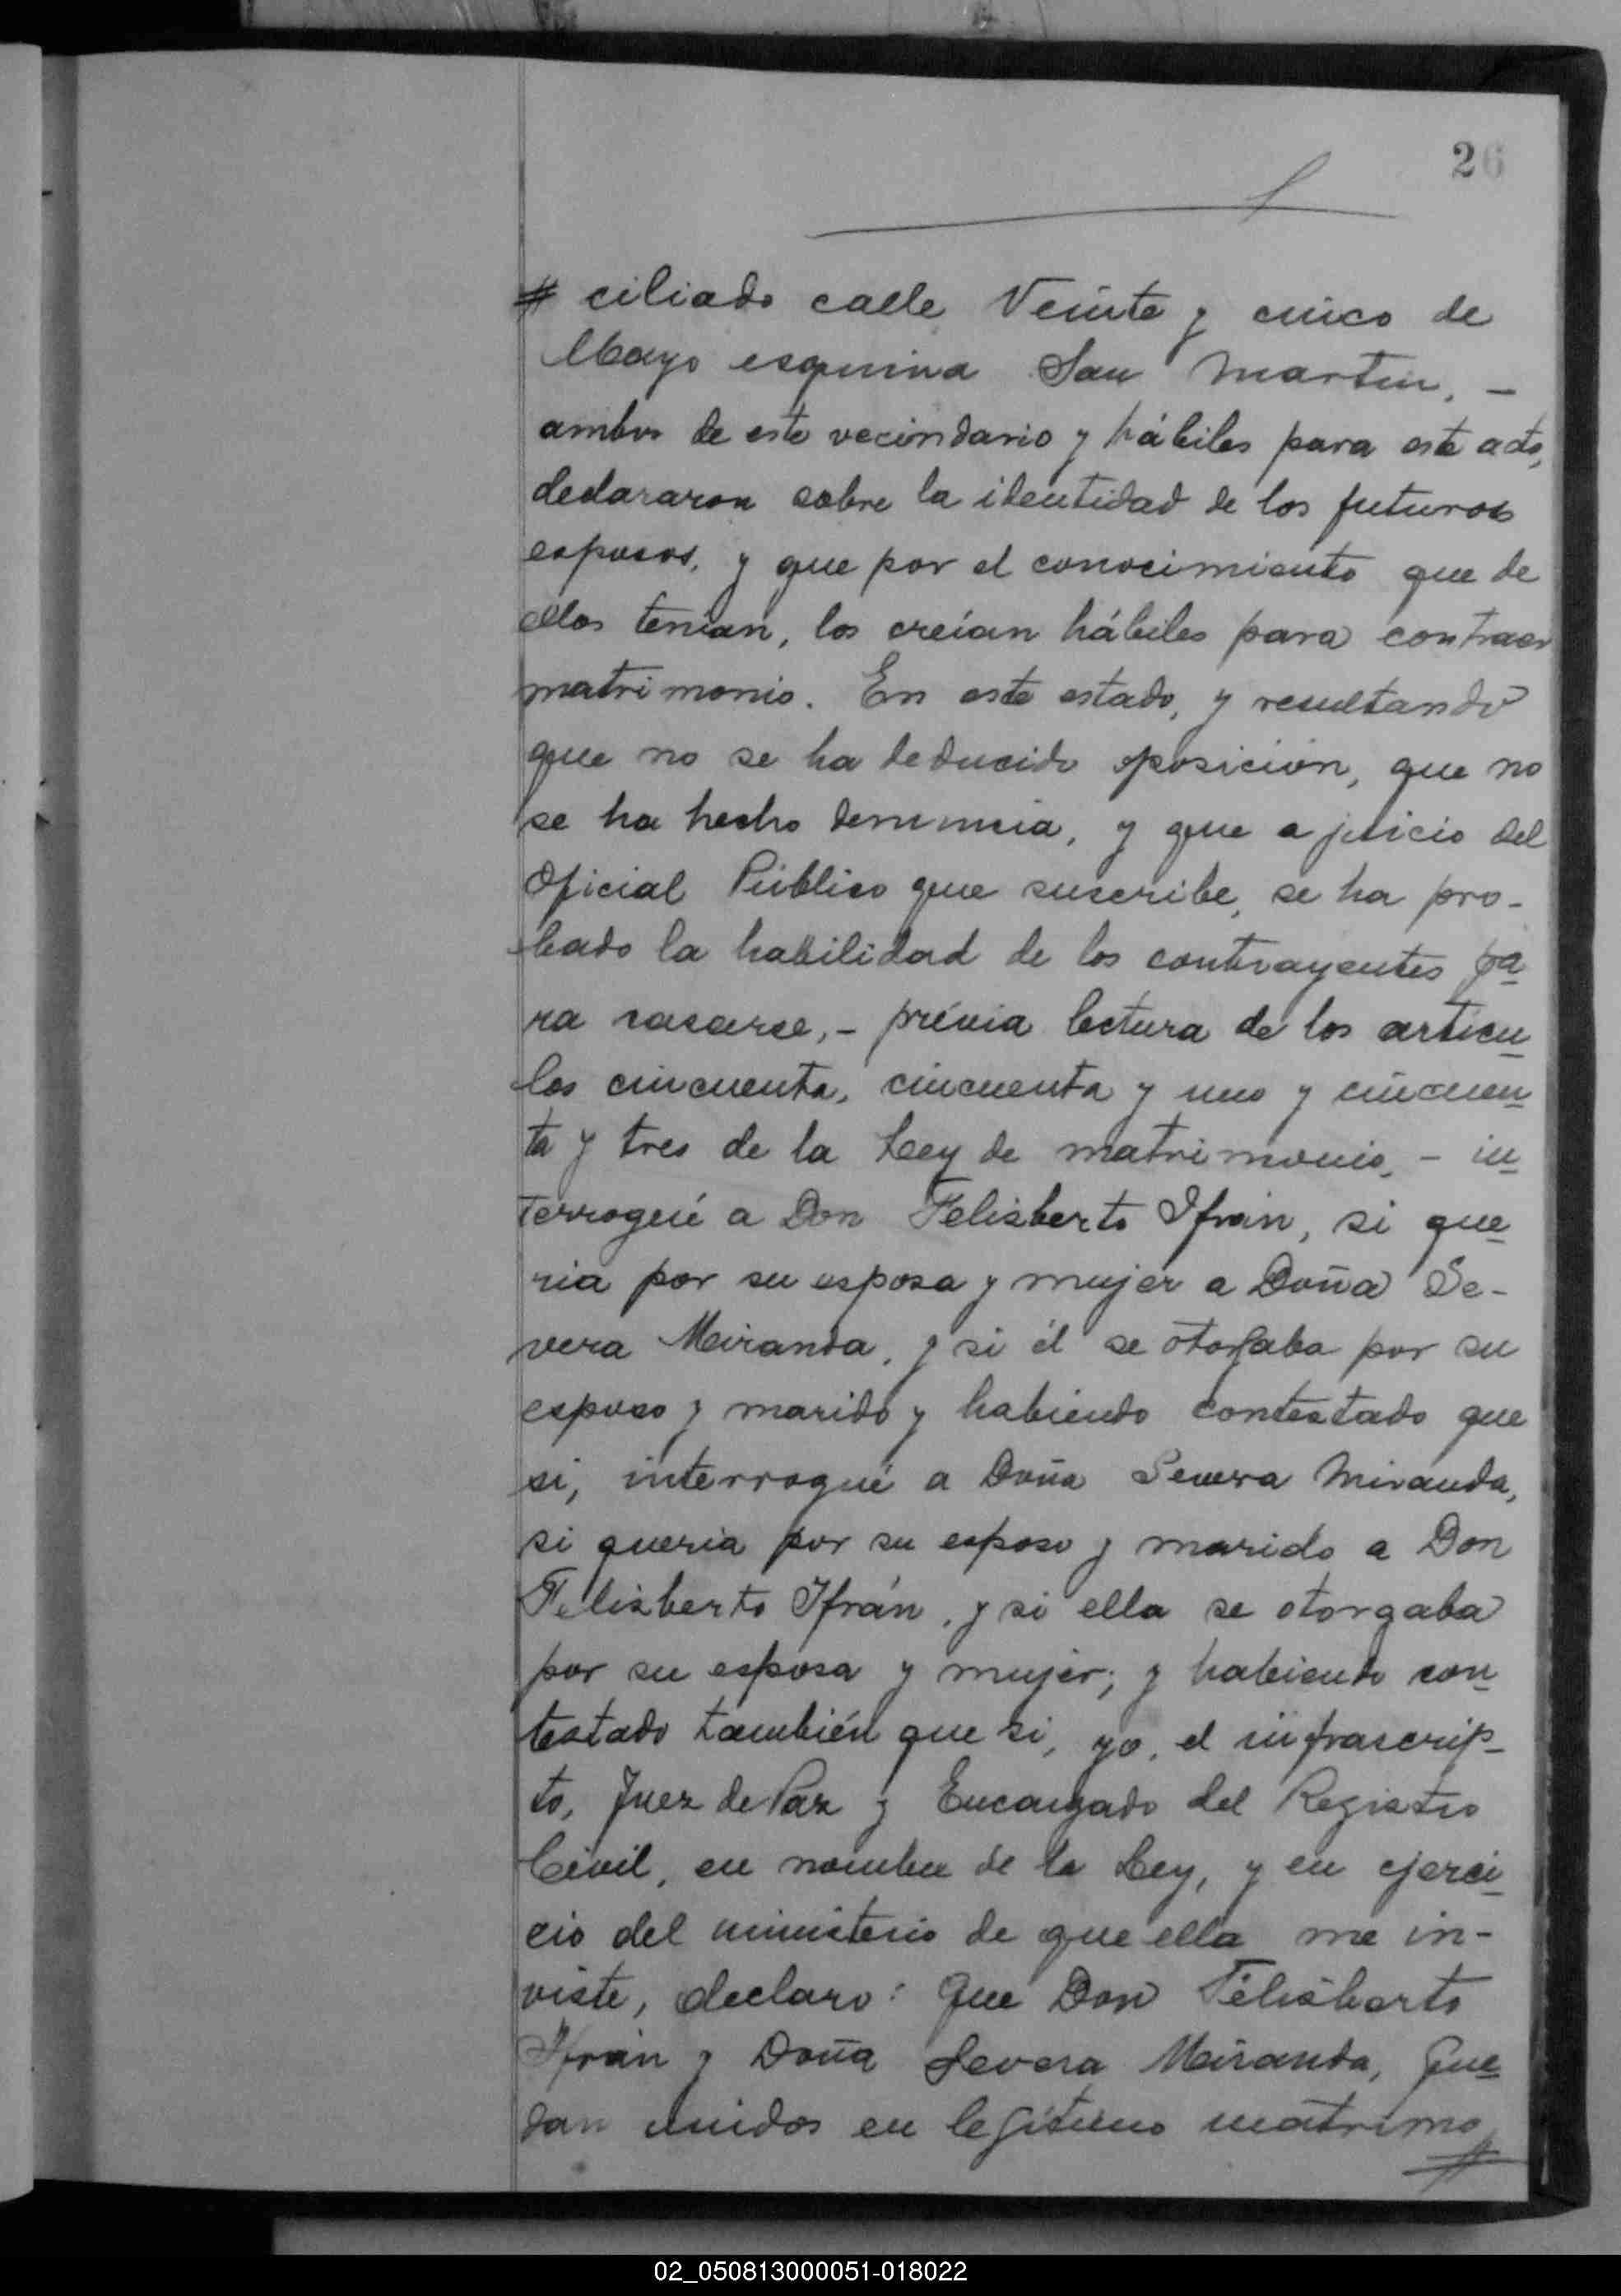 26
# ciliado calle Veinte y cinco de
Mayo esquina San Martin, -
ambos de este vecindario y hábiles para este acto,
declararon sobre la identidad de los futuros
esposos, y que por el conocimiento que de
ellos tenían, los creían hábiles para contraer
matrimonio. En este estado, y resultando
que no se ha deducido oposición, que no
se ha hecho denuncia, y que a juicio del
Oficial Público que suscribe, se ha pro-
bado la habilidad de los contrayentes pa
ra casarse, - prévia lectura de los articu
los cincuenta, cincuenta y uno y cincuen
ta y tres de la Ley de matrimonio, - in
terrogué a Don Felisberto Ifrán, si que
ria por su esposa y mujer a Doña Se-
vera Miranda, y si él se otorgaba por su
esposo y marido y habiendo contestado que
si, interrogué a Doña Severa Miranda,
si queria por su esposo y marido a Don
Felisberto Ifrán, y si ella se otorgaba
por su esposa y mujer; y habiendo con
testado también que si, yo, el infrascrip-
to, Juez de Paz y Encargado del Registro
Civil, en nombre de la Ley, y en ejerci
cio del ministerio de que ella me in-
viste, declaro: Que Don Felisberto
Ifrán y Doña Severa Miranda, que
dan unidos en legítimo matrimo
#
02_050813000051-018022